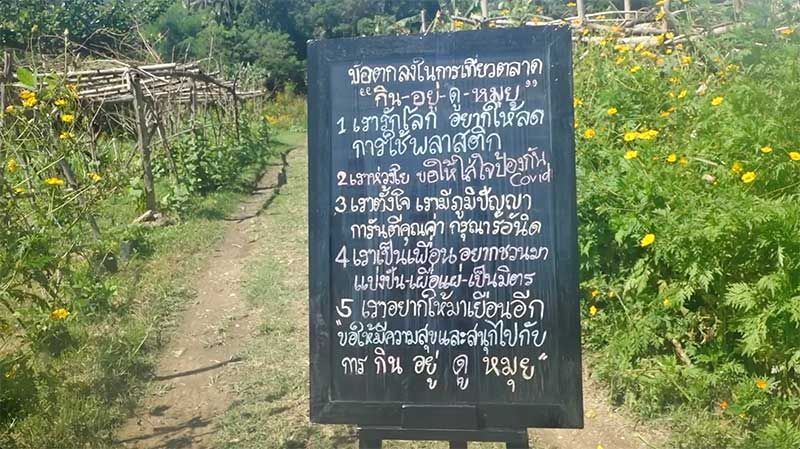 ข้อตกลงในการเที่ยวตลาด
"กิน-อยู่-ดู-หมุย"
1 เรารักโลก อยากให้ลด
การใช้พลาสติก
2 เราห่วงใย ขอให้ใส่ใจป้องกัน
Covid
3 เราตั้งใจ เรามีภูมิปัญญา
การันตีคุณค่า กรุณารออีกนิด
4 เราเป็นเพื่อน อยากชวนมา
แบ่งปัน-เผื่อแผ่-เป็นมิตร
5 เราอยากให้มาเยือนอีก
"ขอให้มีความสุขและสนุกไปกับ
การ กิน อยู่ ดู หมุย"